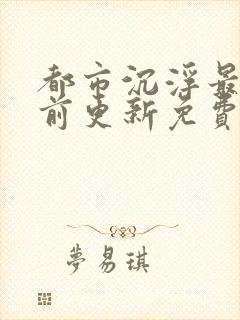 都市沉浮最
前更新免費
夢易琪